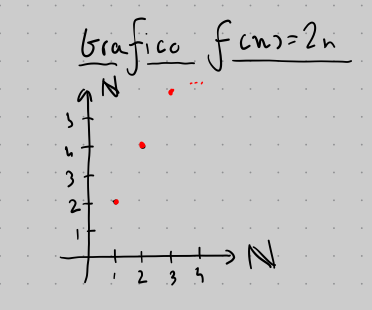 Grafico f(n)=2n
N
5
4
3
2
1
1 2 3 4
N